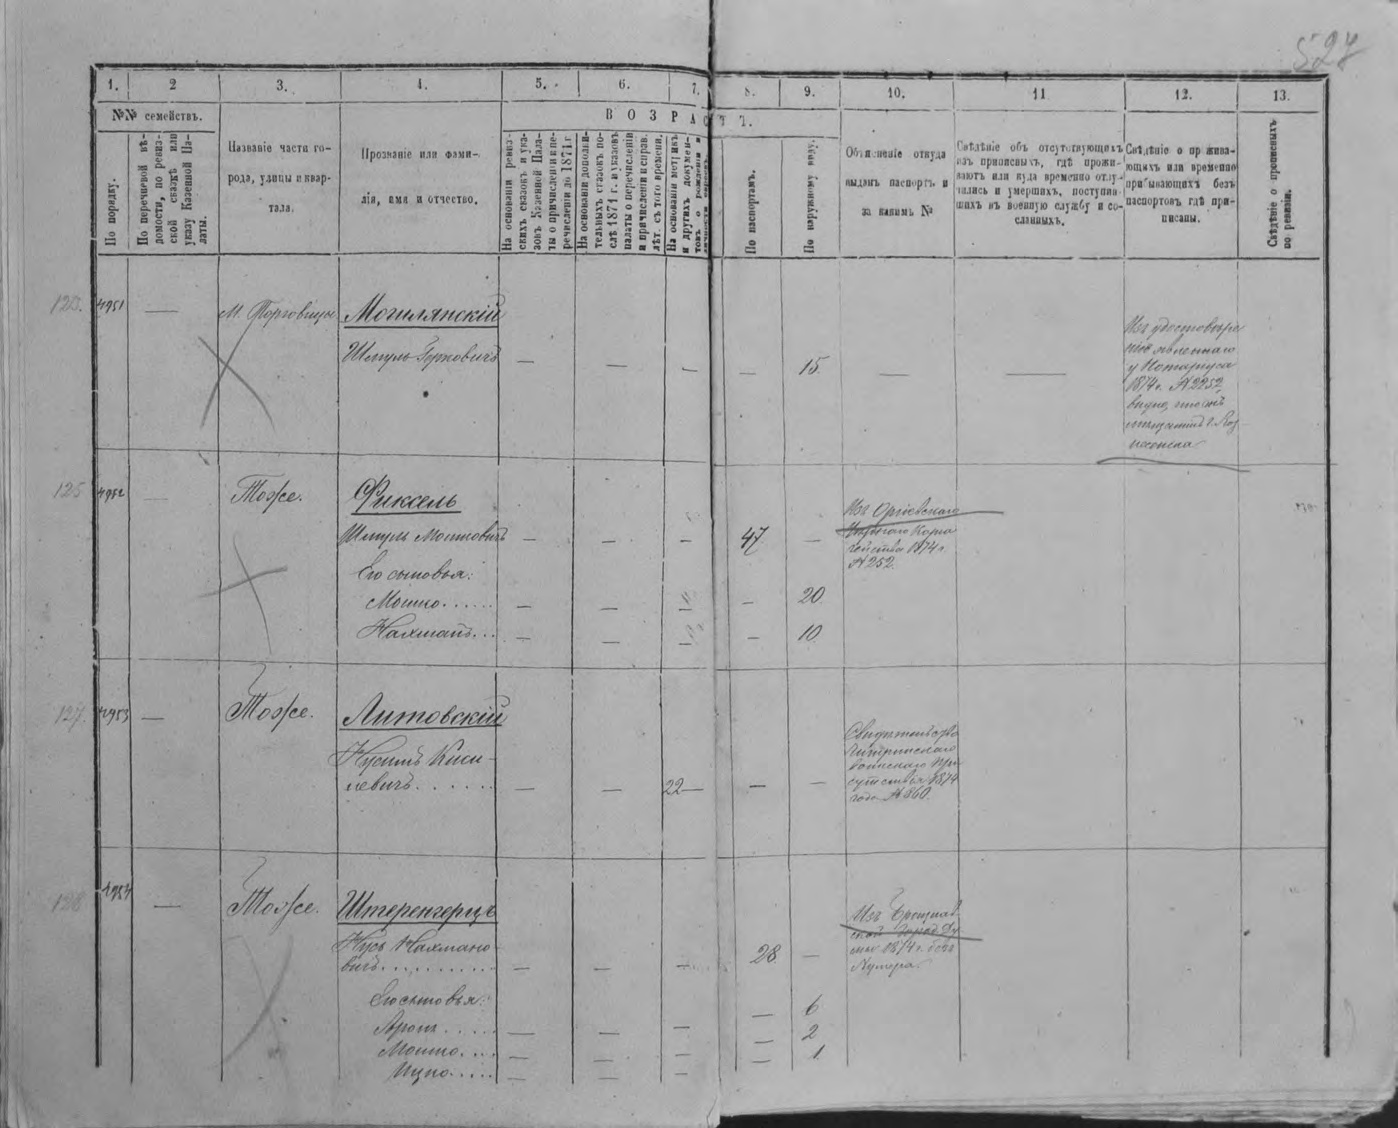 527
1.
2
3.
4.
5.
6.
7.
8.
9.
10.
11
12.
13.
№№ семействъ.
ВОЗРАСТЪ.
По порядку.
По перечневой вѣ-
домости, по ревиз-
ской сказкѣ или
указу Казенной Па-
латы.
Названіе части го-
рода, улицы и квар-
тала.
Прозваніе или фами-
лія, имя и отчество.
На основаніи ревиз-
скихъ сказокъ и ука-
зовъ Казенной Пала-
ты о причисленіи и пе-
речисленіи до 1871 г
На основаніи дополни-
тельныхъ сказокъ по-
слѣ 1871 г. и указовъ
палаты о перечисленіи
и причисленіи и справ.
лѣт. съ того времени.
На основаніи метрикъ
и другихъ докумен-
товъ о рожденіи и
По паспортамъ.
По наружному виду.
Объясненіе откуда
выданъ паспортъ и
за какимъ №
Свѣдѣніе объ отсутствующихъ
изъ приписныхъ, гдѣ прожи-
ваютъ или куда временно отлу-
чились и умершихъ, поступив-
шихъ въ военную службу и со-
сланныхъ.
Свѣдѣніе о прожива-
ющихъ или временно
прибывающихъ безъ
паспортовъ гдѣ при-
писаны.
Свѣдѣніе о прописныхъ
по ревизіи.
123.
4951
—
М. Торговица
Могилянскій
Шмуль Герковичъ
— — — — 15. — —
Изъ удостовѣре
нія явленнаго
у Нотаріуса
1874 г. №2252
видно, что онъ
125
4952
—
Тоже.
Фиксель
Шмуль Мошковичъ — — — 47 —
Изъ Оргѣевскаго
1874 г.
№252.
Его сыновья:
Мошко...... — — — — 20.
Нахманъ... — — — — 10.
127.
4953
—
Тоже.
Литовскій
Нусимъ Киси-
левичъ...... — — 22 — — —
Свидѣтельство
воинскаго при
сутствія 1874
года №860.
128
4954
—
Тоже.
Штеренгерцъ
Нусъ Нахмано-
вичъ.......... — — — 28. —
Изъ Брацлав-
ской Город Ду
мы 1874 г. безъ
Нумера.
Его сыновья:
Аронъ..... — — — — 6
Мошко.... — — — — 2
Ицко..... — — — — 1